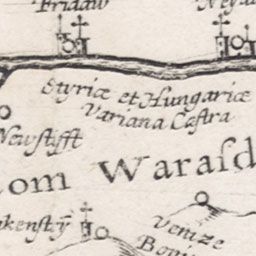 Fridaw
Styriæ et Hungaricæ
Variana Castra
Newstifft
om Waraſd
kenstÿ
Venize